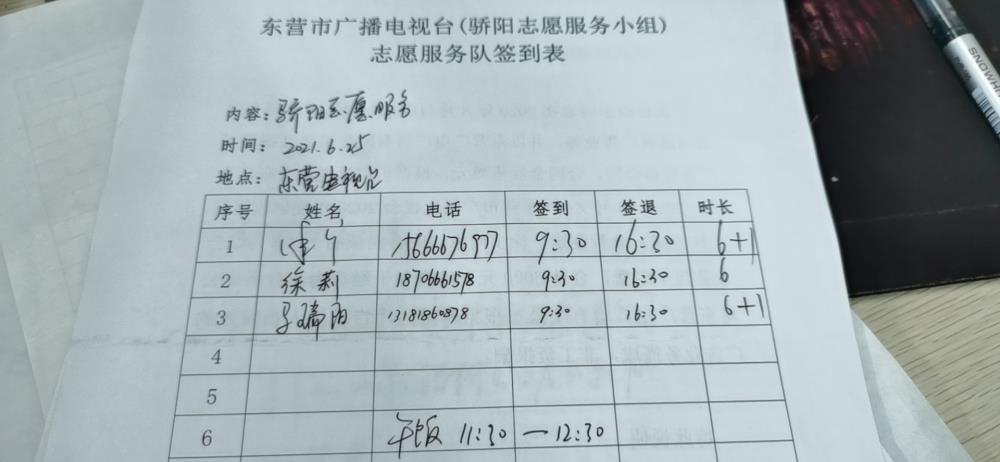 东营市广播电视台(骄阳志愿服务小组)
志愿服务队签到表
内容: 骄阳志愿服务
时间: 2021.6.25
地点: 东营电视台
序号 姓名 电话 签到 签退 时长
1 15666676977 9:30 16:30 6+1
2 徐莉 18706661578 9:30 16:30 6
3 阳 13181860878 9:30 16:30 6+1
4
5
6 午饭 11:30 — 12:30
SNOWHI